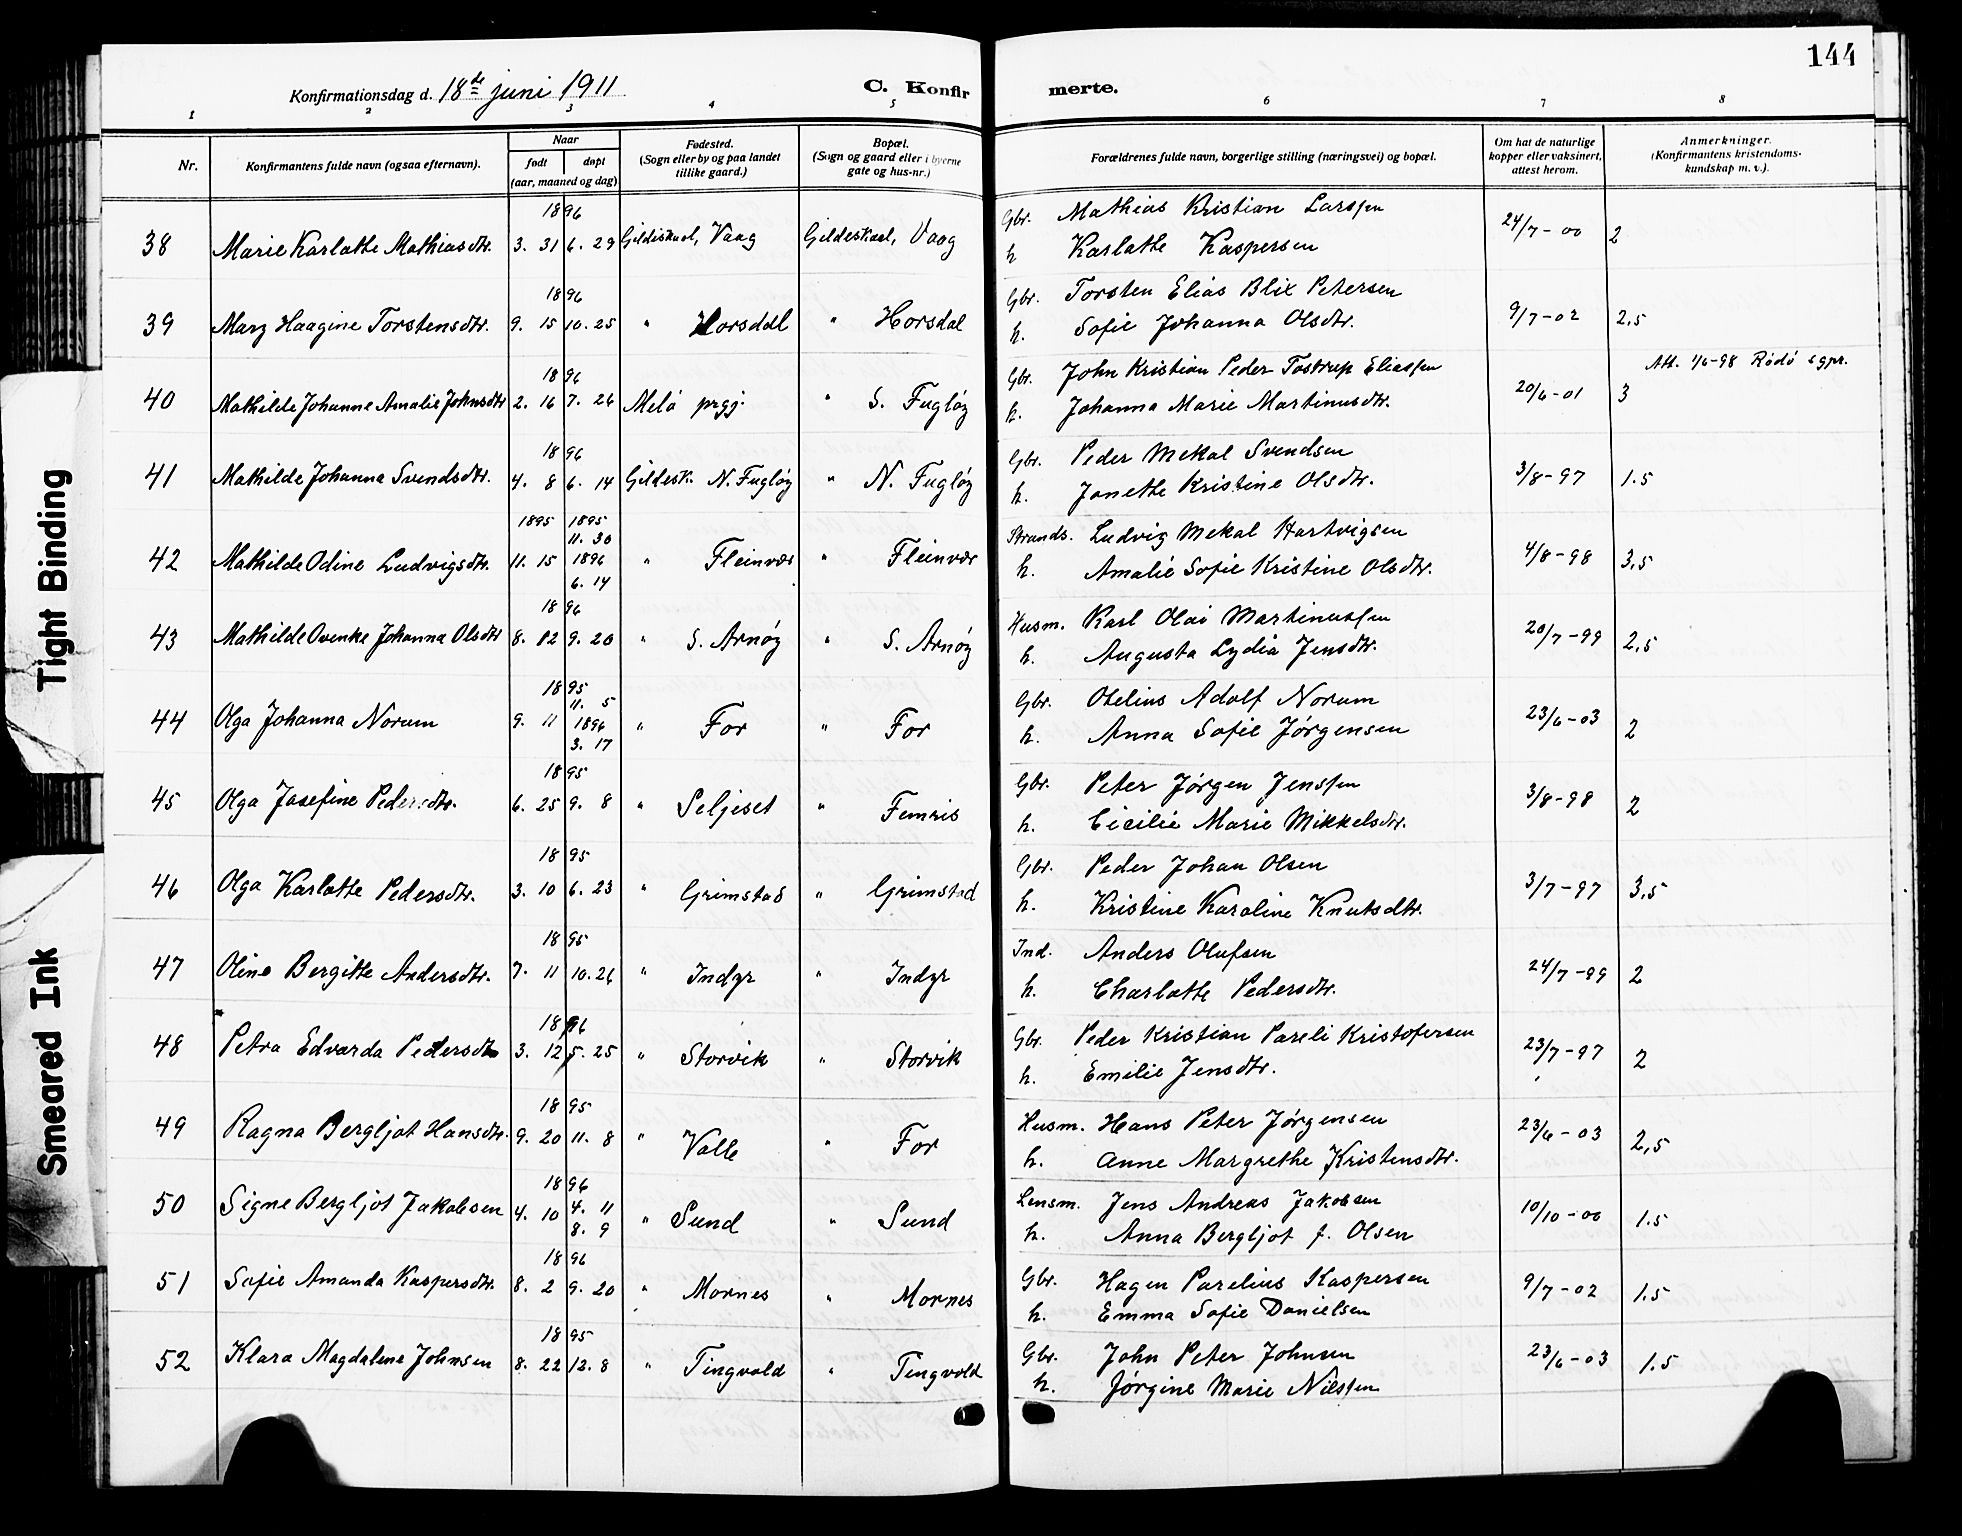 144
Konfirmationsdag d. 18de juni 1911
C. Konfirmerte.
1 2 3 4 5 6 7 8
Nr.
Konfirmantens fulde navn (ogsaa efternavn).
Naar
født døpt
(aar, maaned og dag)
Fødested.
(Sogn eller by og paa landet
tillike gaard.)
Bopæl.
(Sogn og gaard eller i byerne
gate og hus-nr.)
Forældrenes fulde navn, borgerlige stilling (næringsvei) og bopæl.
Om hat de naturlige
kopper eller vaksinert,
attest herom.
Anmerkninger.
(Konfirmantens kristendoms-
kundskap m. v.).
1896 Gbr. Mathias Kristian Larssen
38 Marie Karlotte Mathiasdtr. 3. 31 6. 29 Gildeskaal, Vaag Gildeskaal, Vaag h. Karlotte Kaspersen 24/7-00 2
1896 Gbr. Torsten Elias Blix Petersen
39 Mary Haagine Torstensdtr. 9. 15 10. 25 " Horsdal " Horsdal h. Sofie Johanna Olsdtr. 9/7-02 2,5
1896 Gbr. John Kristian Peder Tostrup Eliassen Att. 1/6-98 Rødø sgpr.
40 Mathilde Johanne Amalie Johnsdtr 2. 16 7. 26 Melø prgj. " S. Fugløy h. Johanna Marie Martinusdtr. 20/6-01 3
1896 Gbr. Peder Mekal Svendsen
41 Mathilde Johanna Svendsdtr. 4. 8 6. 14 Gildesk. N. Fugløy " N. Fugløy h. Janette Kristine Olsdtr. 3/8-97 1.5
1895 1895 Strands. Ludvig Mekal Hartvigsen
11. 30
42 Mathilde Odine Ludvigsdtr. 11. 15 1896 " Fleinvær " Fleinvær h. Amalie Sofie Kristine Olsdtr. 4/8-98 3,5
6. 14
1896 Husm. Karl Olai Martinussen
43 Mathilde Ovenke Johanna Olsdtr 8. 12 9. 20 " S. Arnøy " S. Arnøy h. Augusta Lydia Jensdtr. 20/7-99 2,5
1895 Gbr. Otelius Adolf Norum
11. 5
44 Olga Johanna Norum 9. 11 1896 " For " For h. Anna Sofie Jørgensen 23/6-03 2
3. 17
1895 Gbr. Peter Jørgen Jenssen
45 Olga Josefine Pedersdtr. 6. 25 9. 8 " Seljeset " Femris h. Cicilie Marie Mikkelsdtr. 3/8-98 2
1895 Gbr. Peder Johan Olsen
46 Olga Karlotte Pedersdtr. 3. 10 6. 23 " Grimstad " Grimstad h. Kristine Karoline Knutsdtr. 3/7-97 3,5
1895 Ind. Anders Olufsen
47 Oline Bergitte Andersdtr. 7. 11 10. 26 " Indyr " Indyr h. Charlotte Pedersdtr. 24/7-99 2
1896 Gbr. Peder Kristian Pareli Kristofersen
48 Petra Edvarda Pedersdtr 3. 12 5. 25 " Storvik " Storvik h. Emilie Jensdtr. 23/7-97 2
1895 Husm. Hans Peter Jørgensen
49 Ragna Bergljot Hansdtr. 9. 20 11. 8 " Valle " For h. Anne Margrethe Kristensdtr. 23/6-03 2,5
1896 Lensm. Jens Andreas Jakobsen
50 Signe Bergljot Jakobsen 4. 10 4. 11 " Sund " Sund h. Anna Bergljot f. Olsen 10/10-00 1.5
8. 9
1896 Gbr. Hagen Parelius Kaspersen
51 Sofie Amanda Kaspersdtr. 8. 2 9. 20 " Mornes " Mornes h. Emma Sofie Danielsen 9/7-02 1.5
1895 Gbr. John Peter Johnsen
52 Klara Magdalene Johnsen 8. 22 12. 8 " Tingvold " Tingvold h. Jørgine Marie Nilssen 23/6-03 1.5
Tight Binding
Smeared Ink